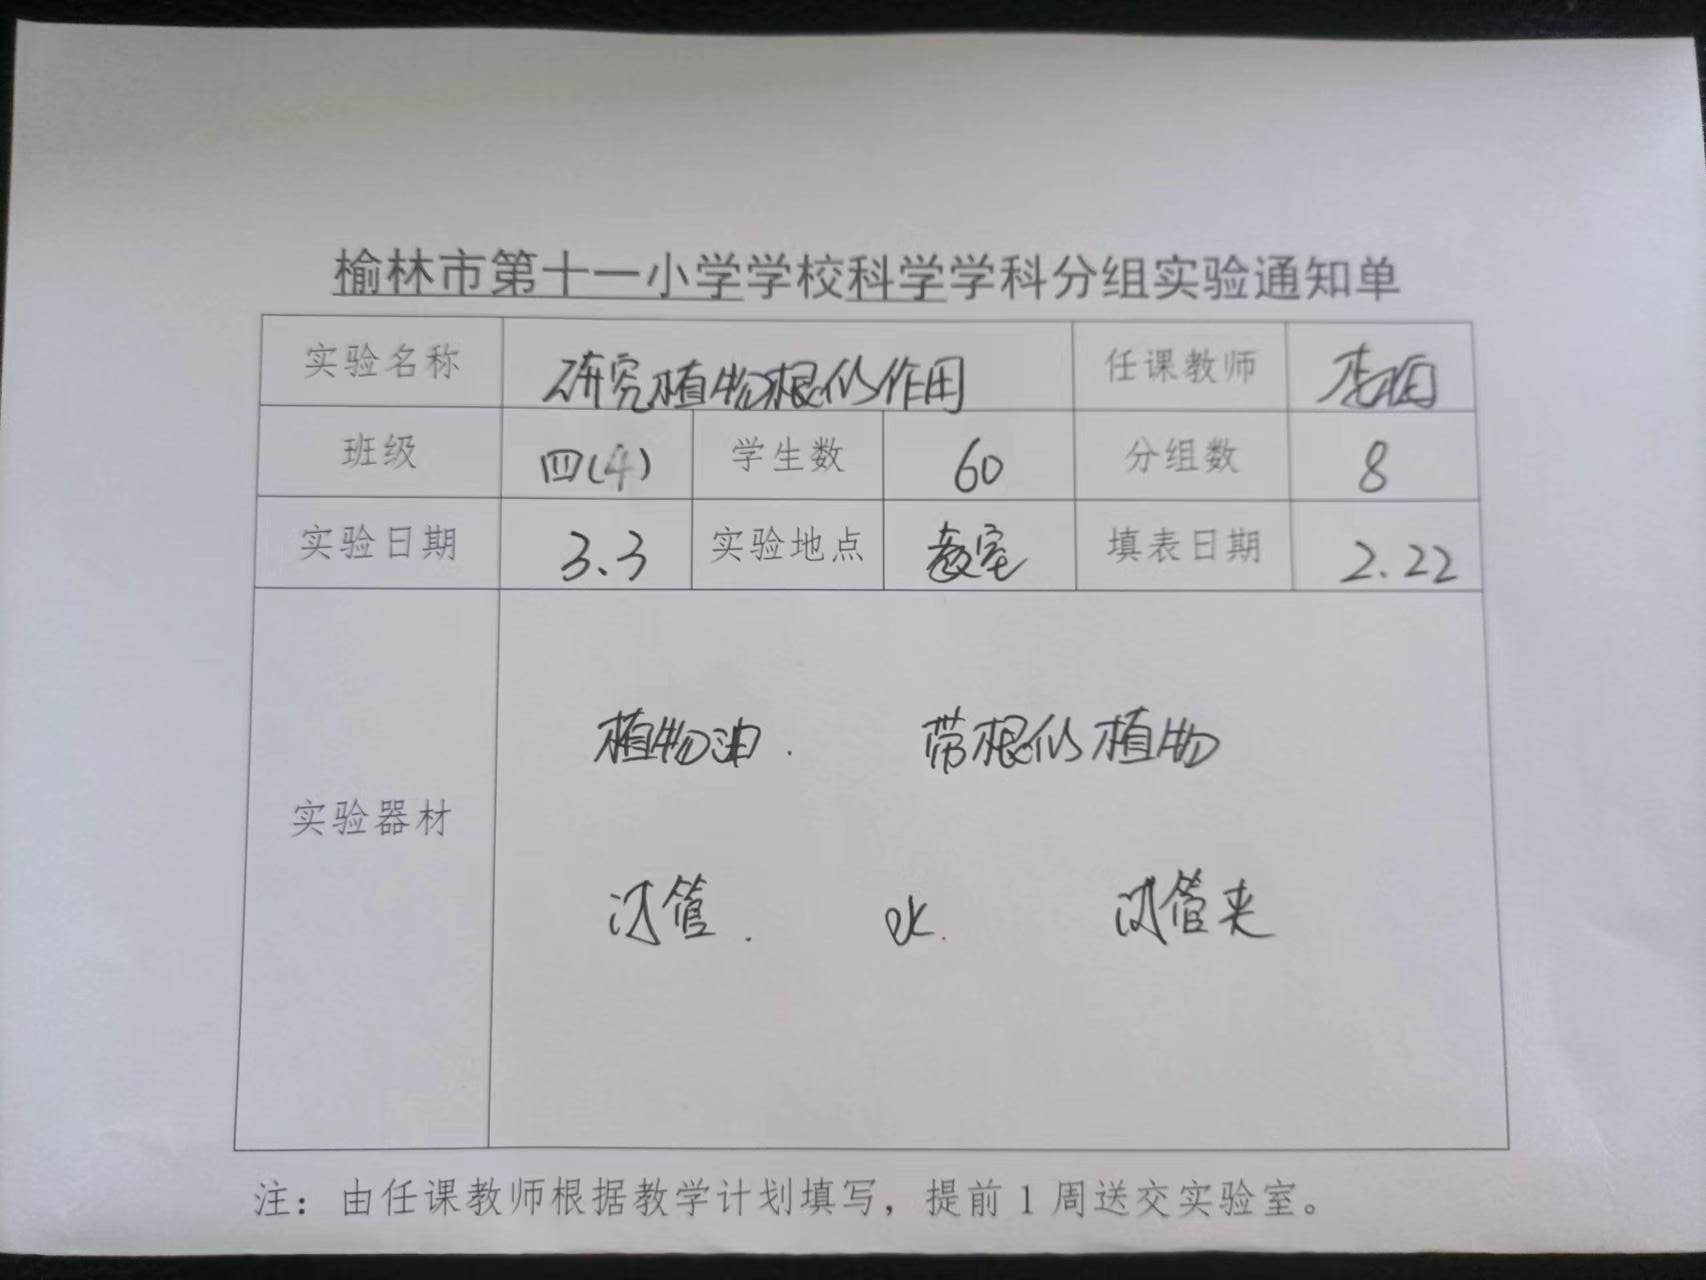 榆林市第十一小学学校科学学科分组实验通知单
实验名称 研究植物根的作用 任课教师
班级 四(4) 学生数 60 分组数 8
实验日期 3.3 实验地点 教室 填表日期 2.22
植物油. 带根的植物
实验器材
试管. 水. 试管夹
注：由任课教师根据教学计划填写，提前1周送交实验室。